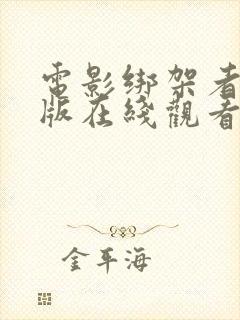 電影绑架者
版在綫觀看
金平海